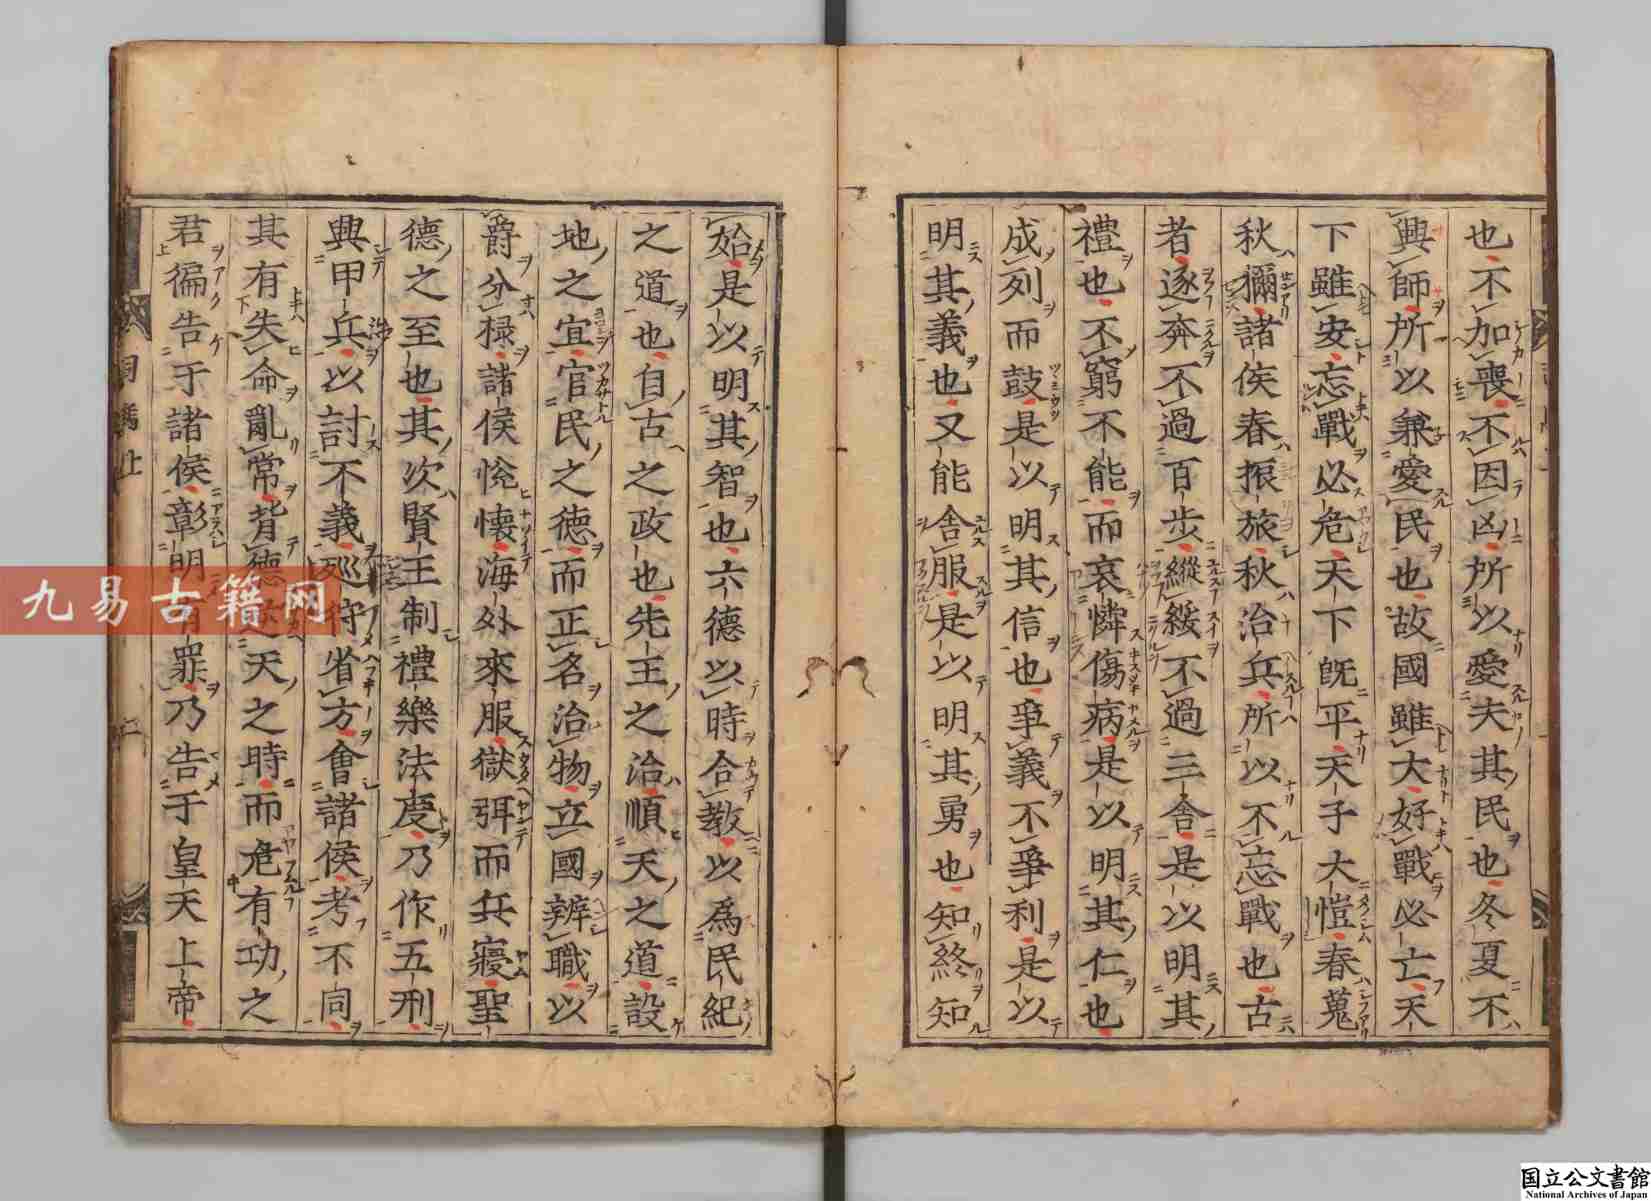 也不加喪不因凶所以愛夫其民也冬夏不
興師所以兼愛民也故國雖大好戰必亡天
下雖安忘戰必危天下既平天子大愷春蒐
秋獮諸侯春振旅秋治兵所以不忘戰也古
者逐奔不過百步縱綏不過三舍是以明其
禮也不窮不能而哀憐傷病是以明其仁也
成列而鼓是以明其信也爭義不爭利是以
明其義也又能舍服是以明其勇也知終知
始是以明其智也六德以時合教以為民紀
之道也自古之政也先王之治順天之道設
地之宜官民之德而正名治物立國辨職以
爵分祿諸侯悅懷海外來服獄弭而兵寢聖
德之至也其次賢王制禮樂法度乃作五刑
興甲兵以討不義巡狩省方會諸侯考不同
其有失命亂常背德逆天之時而危有功之
君徧告于諸侯彰明有罪乃告于皇天上帝
司馬
九易古籍网
国立公文書館
National Archives of Japan